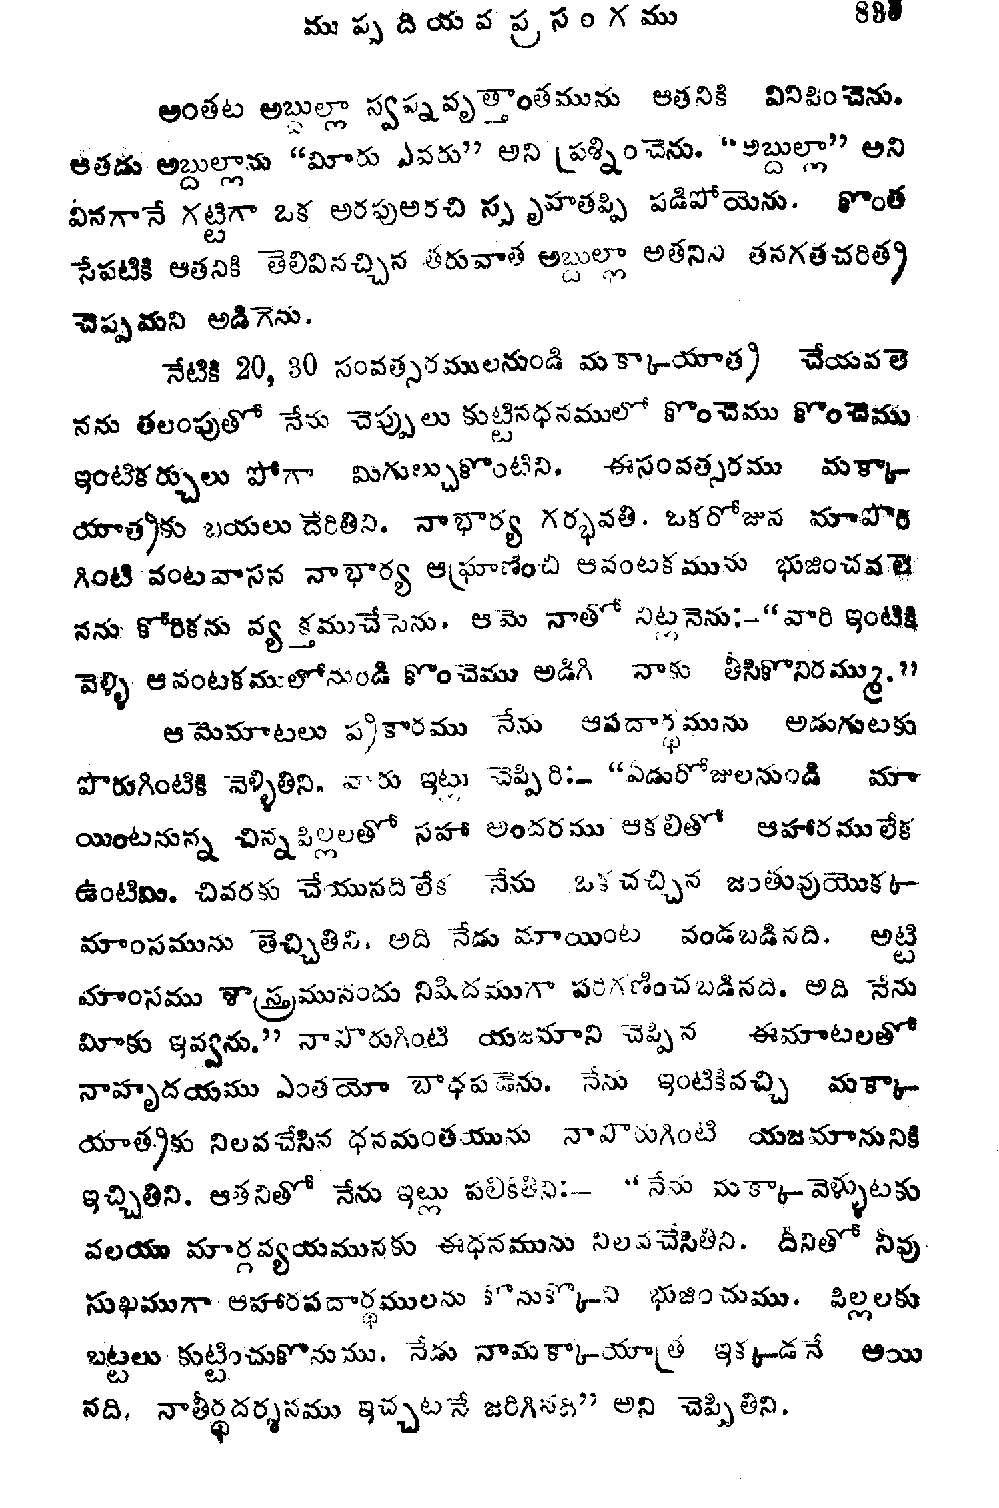 ముప్పదియవ ప్రసంగము
అంతట అబ్దుల్లా స్వప్నవృత్తాంతమును ఆతనికి వినిపించెను.
ఆతడు అబ్దుల్లాను “మీారు ఎవరు” అని ప్రశ్నించెను. “అబ్దుల్లా” అని
వినగానే గట్టిగా ఒక అరపుఅరచి స్పృహతప్పి పడిపోయెను. కొంత
సేపటికి ఆతనికి తెలివినచ్చిన తరువాత అబ్దుల్లా అతనిని తనగతచరిత్ర
చెప్పమని అడిగెను.
నేటికి 20, 30 సంవత్సరములనుండి మక్కాయాత్ర చేయవలె
నను తలంపుతో నేను చెప్పులు కుట్టినధనములో కొంచెము కొంచెము
ఇంటికర్చులు పోగా మిగుల్చుకొంటిని. ఈసంవత్సరము మక్కా
యాత్రకు బయలుదేరితిని. నాభార్య గర్భవతి. ఒకరోజున మాపొరు
గింటి వంటవాసన నాభార్య ఆఘ్రాణించి ఆవంటకమును భుజించవలె
నను కోరికను వ్యక్తముచేసెను. ఆమె నాతో నిట్లనెను:–“వారి ఇంటికి
వెళ్ళి ఆవంటకములోనుండి కొంచెము అడిగి నాకు తీసికొనిరమ్ము.”
ఆమెమాటలు ప్రకారము నేను ఆపదార్థమును అడుగుటకు
పొరుగింటికి వెళ్ళితిని. వారు ఇట్లు చెప్పిరి:– “ఏడురోజులనుండి మా
యింటనున్న చిన్నపిల్లలతో సహా అందరము ఆకలితో ఆహారములేక
ఉంటిమి. చివరకు చేయునదిలేక నేను ఒకచచ్చిన జంతువుయొక్క
మాంసమును తెచ్చితిని. అది నేడు మాయింట వండబడినది. అట్టి
మాంసము శాస్త్రమునందు నిషిదముగా పరిగణించబడినది. అది నేను
మీాకు ఇవ్వను.” నాపొరుగింటి యజమాని చెప్పిన ఈమాటలతో
నాహృదయము ఎంతయో బాధపడెను. నేను ఇంటికివచ్చి మక్కా
యాత్రకు నిలవచేసిన ధనమంతయును నాపొరుగింటి యజమానునికి
ఇచ్చితిని. ఆతనితో నేను ఇట్లు పలికితిని:– “నేను మక్కావెళ్ళుటకు
వలయు మార్గవ్యయమునకు ఈధనమును నిలవచేసితిని. దీనితో నీవు
సుఖముగా ఆహారపదార్థములను కొనుక్కొని భుజించుము. పిల్లలకు
బట్టలు కుట్టించుకొనుము. నేడు నామక్కాయాత్ర ఇక్కడనే అయి
నది, నాతీర్థదర్శనము ఇచ్చటనే జరిగినది” అని చెప్పితిని.